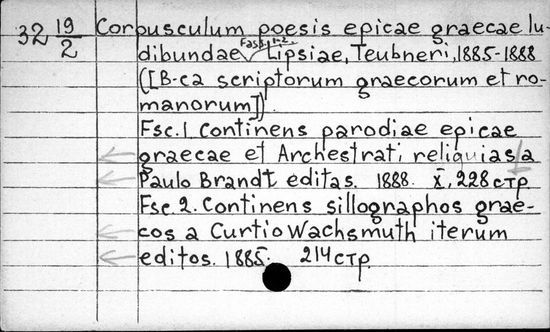 32 19/2 Corpusculum poesis epicae graecae lu-
dibundae Fasc. 1-2 Lipsiae, Teubneri, 1885-1888
([B-ca scriptorum graecorum et ro-
manorum])
Fsc. 1 Continens parodiae epicae
graecae et Archestrati reliquias a
Paulo Brandt editas. 1888. X, 228 стр
Fsc. 2. Continens sillographos grae-
cos a Curtio Wachsmuth iterum
editos. 1885. 214 стр.